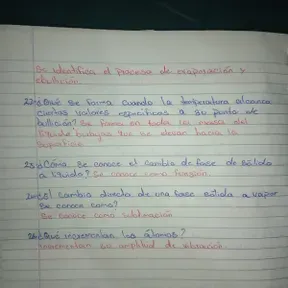 Se identifica el proceso de evaporación y
ebullición.
22¿Qué se forma cuando la temperatura alcanza
ciertos valores específicos a su punto de
ebullición? Se forma en todas la masas del
líquido burbujas que se elevan hacia la
superficie.
23¿Cómo se conoce el cambio de fase de sólido
a líquido? Se conoce como fusión.
El cambio directo de una fase sólida a vapor
se conoce como?
Se conoce como sublimación
¿Qué incrementan los átomos?
Incrementan su amplitud de vibración.